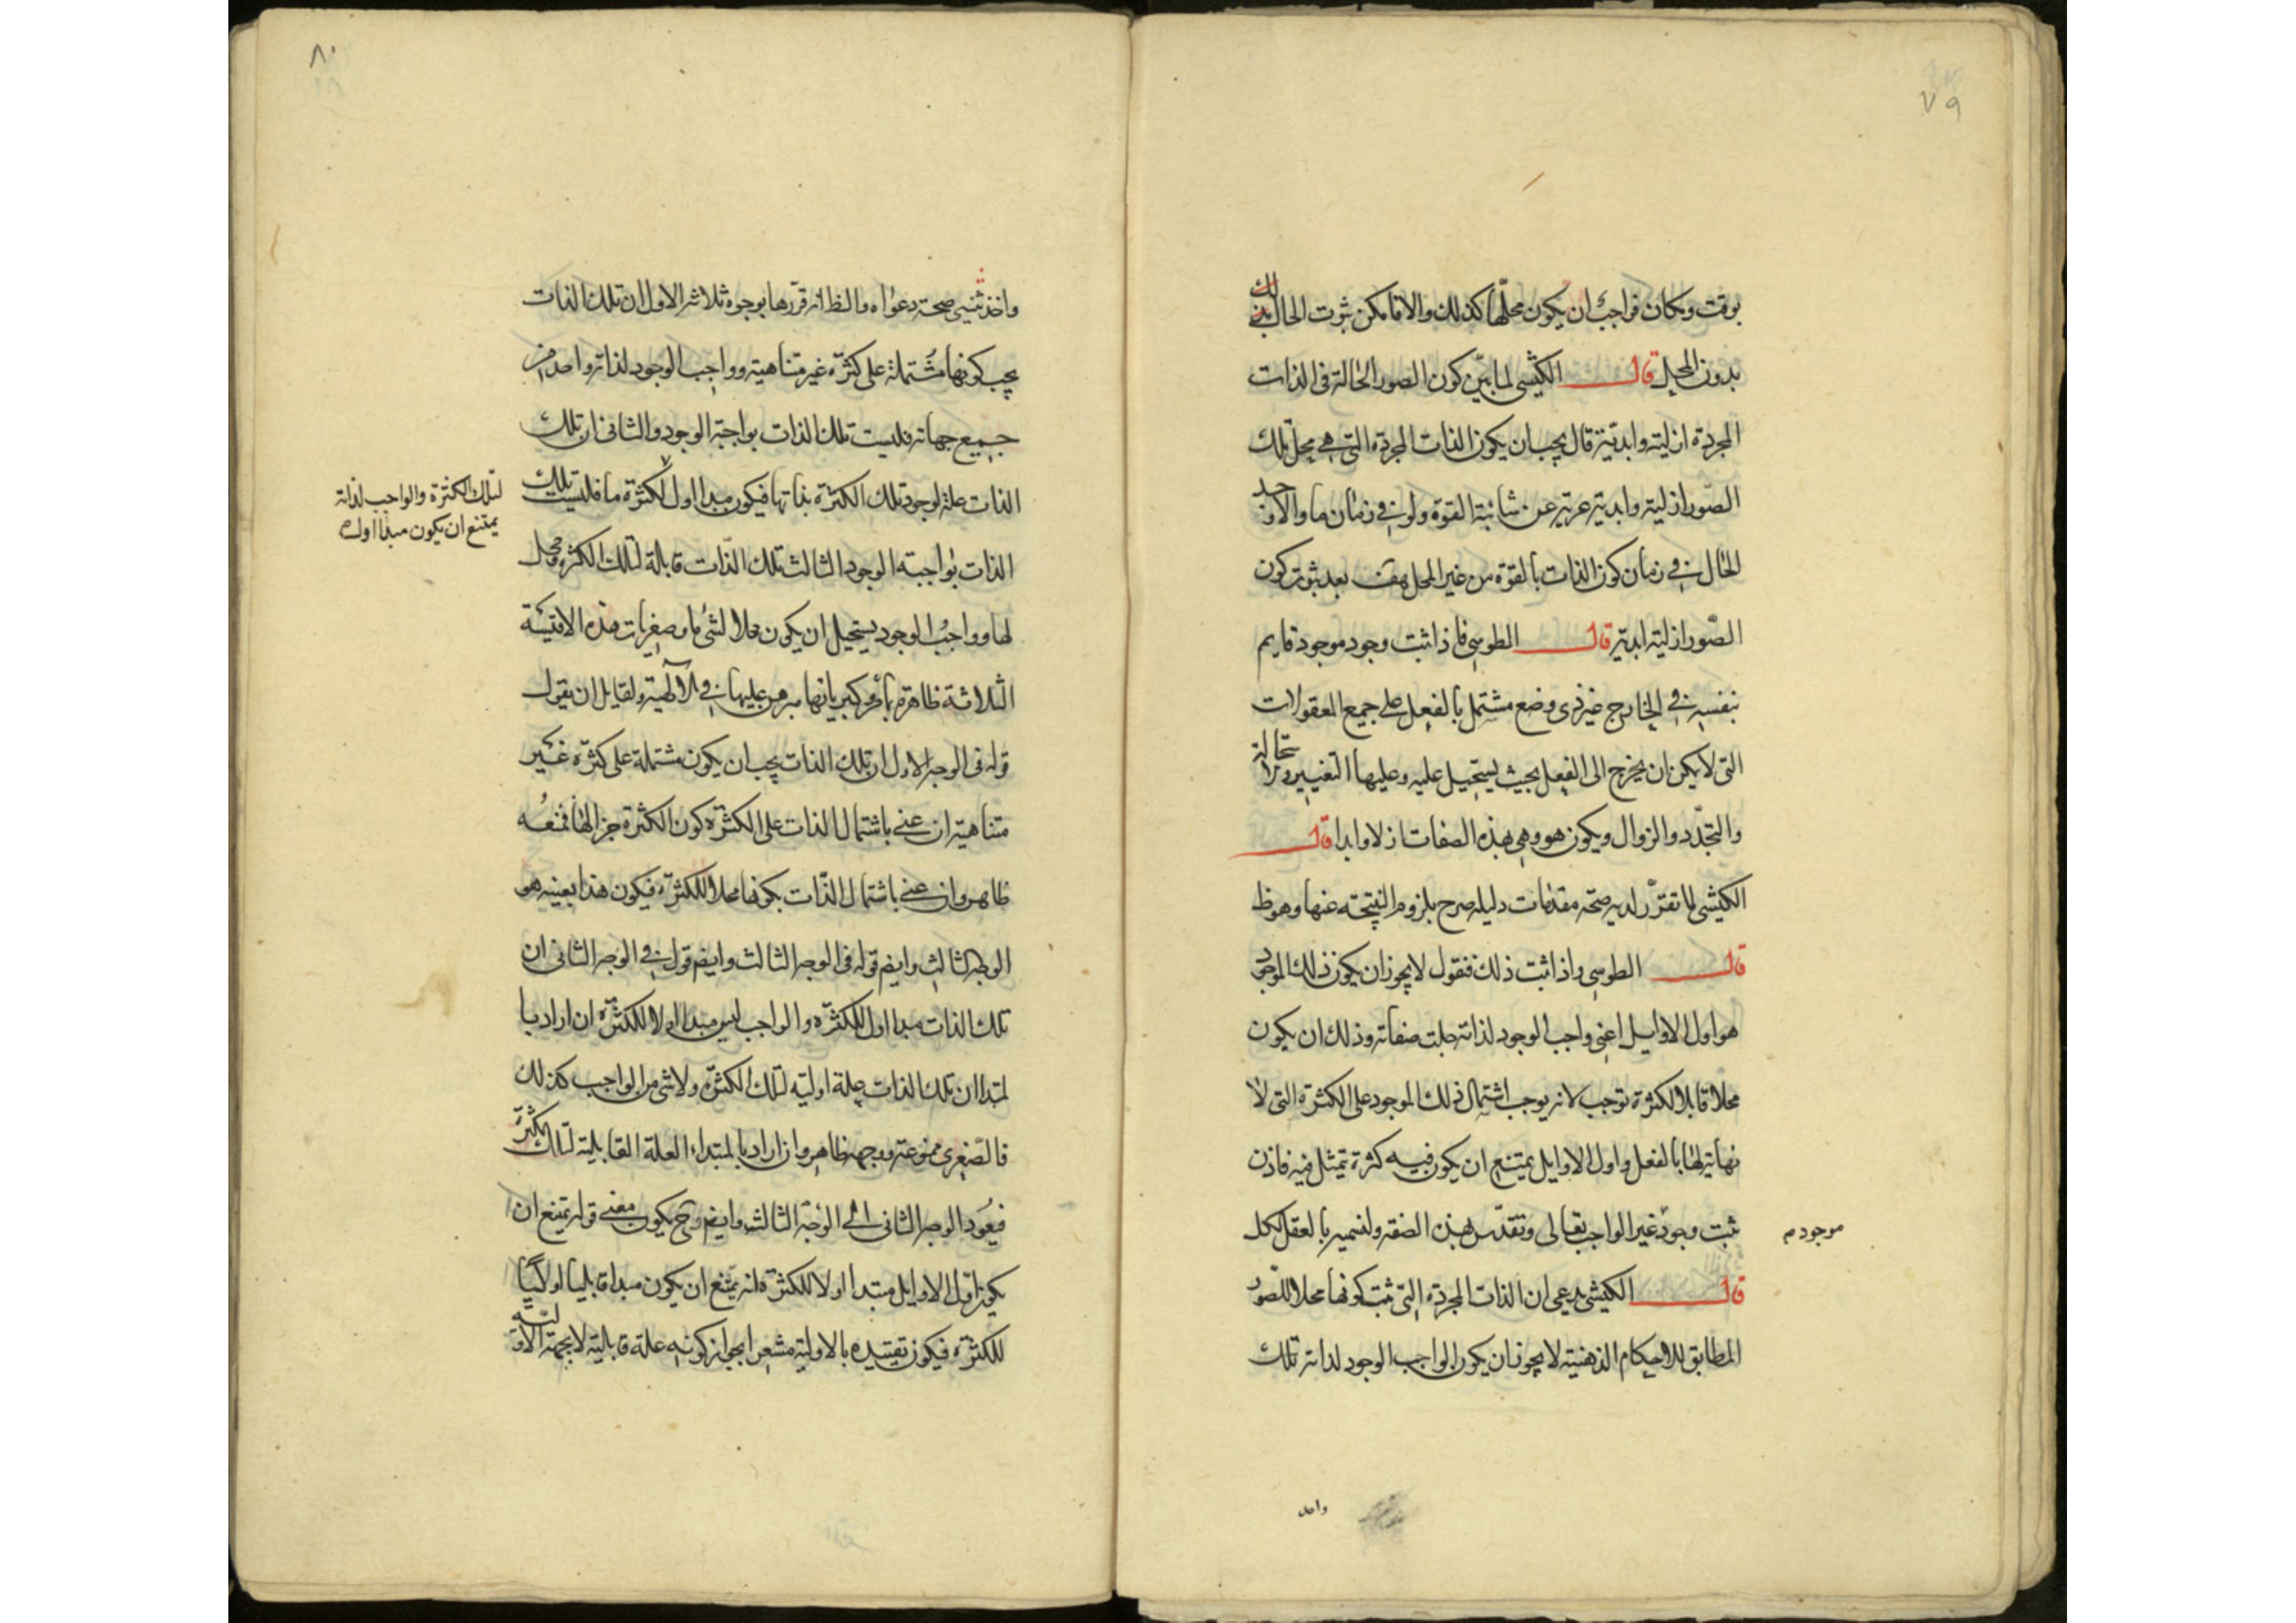 ٧٩
بوقت ومكان فواجب ان يكون محلّها كذلك والا فامكن ثبوت الحال بذلك
بدون المحل قال الكيشى لما بيّن كون الصور الحالة فى الذات
المجردة ازلية وابدية قال يجب ان يكون الذات المجردة التى هى محل تلك
الصور ازلية وابدية عرية عن شائبة القوة ولو فى زمان ما والا وجد
الحال فى زمان كون الذات بالقوة من غير المحل هف بعد ثبوت كون
الصّور ازلية ابدية قال الطوسى فاذا ثبت وجود موجود قايم
بنفسه فى الخارج غير ذى وضع مشتمل بالفعل على جميع المعقولات
التى لا يمكن ان يخرج الى الفعل بحيث يستحيل عليه وعليها التغيير والاستحالة
والتجدّد والزوال ويكون هو وهى بهذه الصفات ازلا وابدا قال
الكيشى لما تقرّر لديه صحة مقدمات دليله صرح بلزوم النتيجة عنها وهو ظ
قال الطوسى واذا ثبت ذلك فنقول لا يجوز ان يكون ذلك الموجود
هو اول الاوايل اعنى واجب الوجود لذاته جلت صفاته وذلك ان يكون
محلا قابلا لكثرة توجب لانه يوجب اشتمال ذلك الموجود على الكثرة التى لا
نهاية لها بالفعل واول الاوايل يمتنع ان يكون فيه كثرة تتمثل فيه فاذن
ثبت وجود غير الواجب تعالى وتقدّس بهذه الصفة ولنسميه بالعقل الكل
موجود م
قال الكيشى يدعى ان الذات المجردة التى ثبت كونها محلا للصّور
المطابق للاحكام الذهنية لا يجوز ان يكون الواجب الوجود لذاته تلك
واحد
٨٠
واخذ يثبت صحة دعواه والظ انه قرّرها بوجوه ثلاثة الاول ان تلك الذات
يجب كونها مشتملة على كثرة غير متناهية وواجب الوجود لذاته واحد من
جميع جهاته فليست تلك الذات بواجبة الوجود والثانى ان تلك
الذات علة لوجود تلك الكثرة بذاتها فيكون مبدا اول لكثرة ما فليست تلك
لتلك الكثرة والواجب لذاته
يمتنع ان يكون مبدا اولا
الذات بواجبة الوجود الثالث تلك الذّات قابلة لتلك الكثرة ومحل
لها وواجب الوجود يستحيل ان يكون محلا لشئ ما وصغريات هذه الاقيسة
الثلاثة ظاهرة وكبرياتها مبرهن عليها فى الالهية ولقايل ان يقول
قوله فى الوجه الاول ان تلك الذات يجب ان يكون مشتملة على كثرة غير
متناهية ان عنى باشتمال الذات على الكثرة كون الكثرة جزا لها فمنعه
ظاهر وان عنى باشتمال الذّات بكونها محلا للكثرة فيكون هذا بعينه هو
الوجه الثالث وايضم قوله فى الوجه الثالث وايضم قوله فى الوجه الثانى ان
تلك الذات مبدا اول للكثرة والواجب ليس مبدا اولا للكثرة ان اراد با
لمبدا ان تلك الذات علة اولية لتلك الكثرة ولا شئ من الواجب كذلك
فالصّغرى ممنوعة ووجهه ظاهر وان اراد بالمبتداء العلة القابلية لتلك الكثرة
فيعود الوجه الثانى الى الوجه الثالث وايضم وح يكون معنى قوله يمتنع ان
يكون اوّل الاوايل مبتدا اولا للكثرة انه يمتنع ان يكون مبدا قابليا اوليا
للكثرة فيكون تقييده بالاولية مشعرا بجواز كونه علة قابلية لا بجهة الاولية